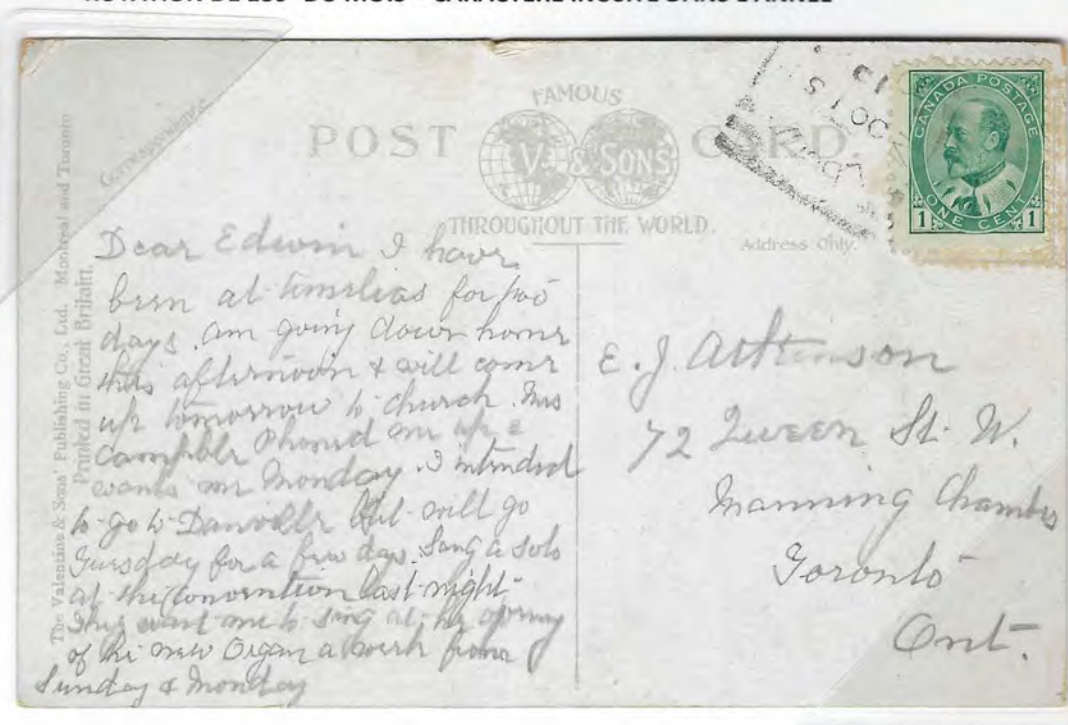 Correspondence.
POST CARD.
FAMOUS
V. & SONS
THROUGHOUT THE WORLD.
Address Only.
The Valentine & Sons' Publishing Co., Ltd. Montreal and Toronto
Printed in Great Britain.
CANADA POSTAGE
1 ONE CENT 1
Dear Edwin I have
been at for two
days. am going down home
this afternoon & will come
up tomorrow to church. Mrs
Campbell Phoned me up &
wants me Monday. I intended
to go to Danville but will go
Tuesday for a few days. Sang a solo
at the Convention last night
They want me to sing at the opening
of the new Organ a week from
Sunday & Monday
E. J. Atkinson
72 Queen St. W.
Manning Chambers
Toronto
Ont.